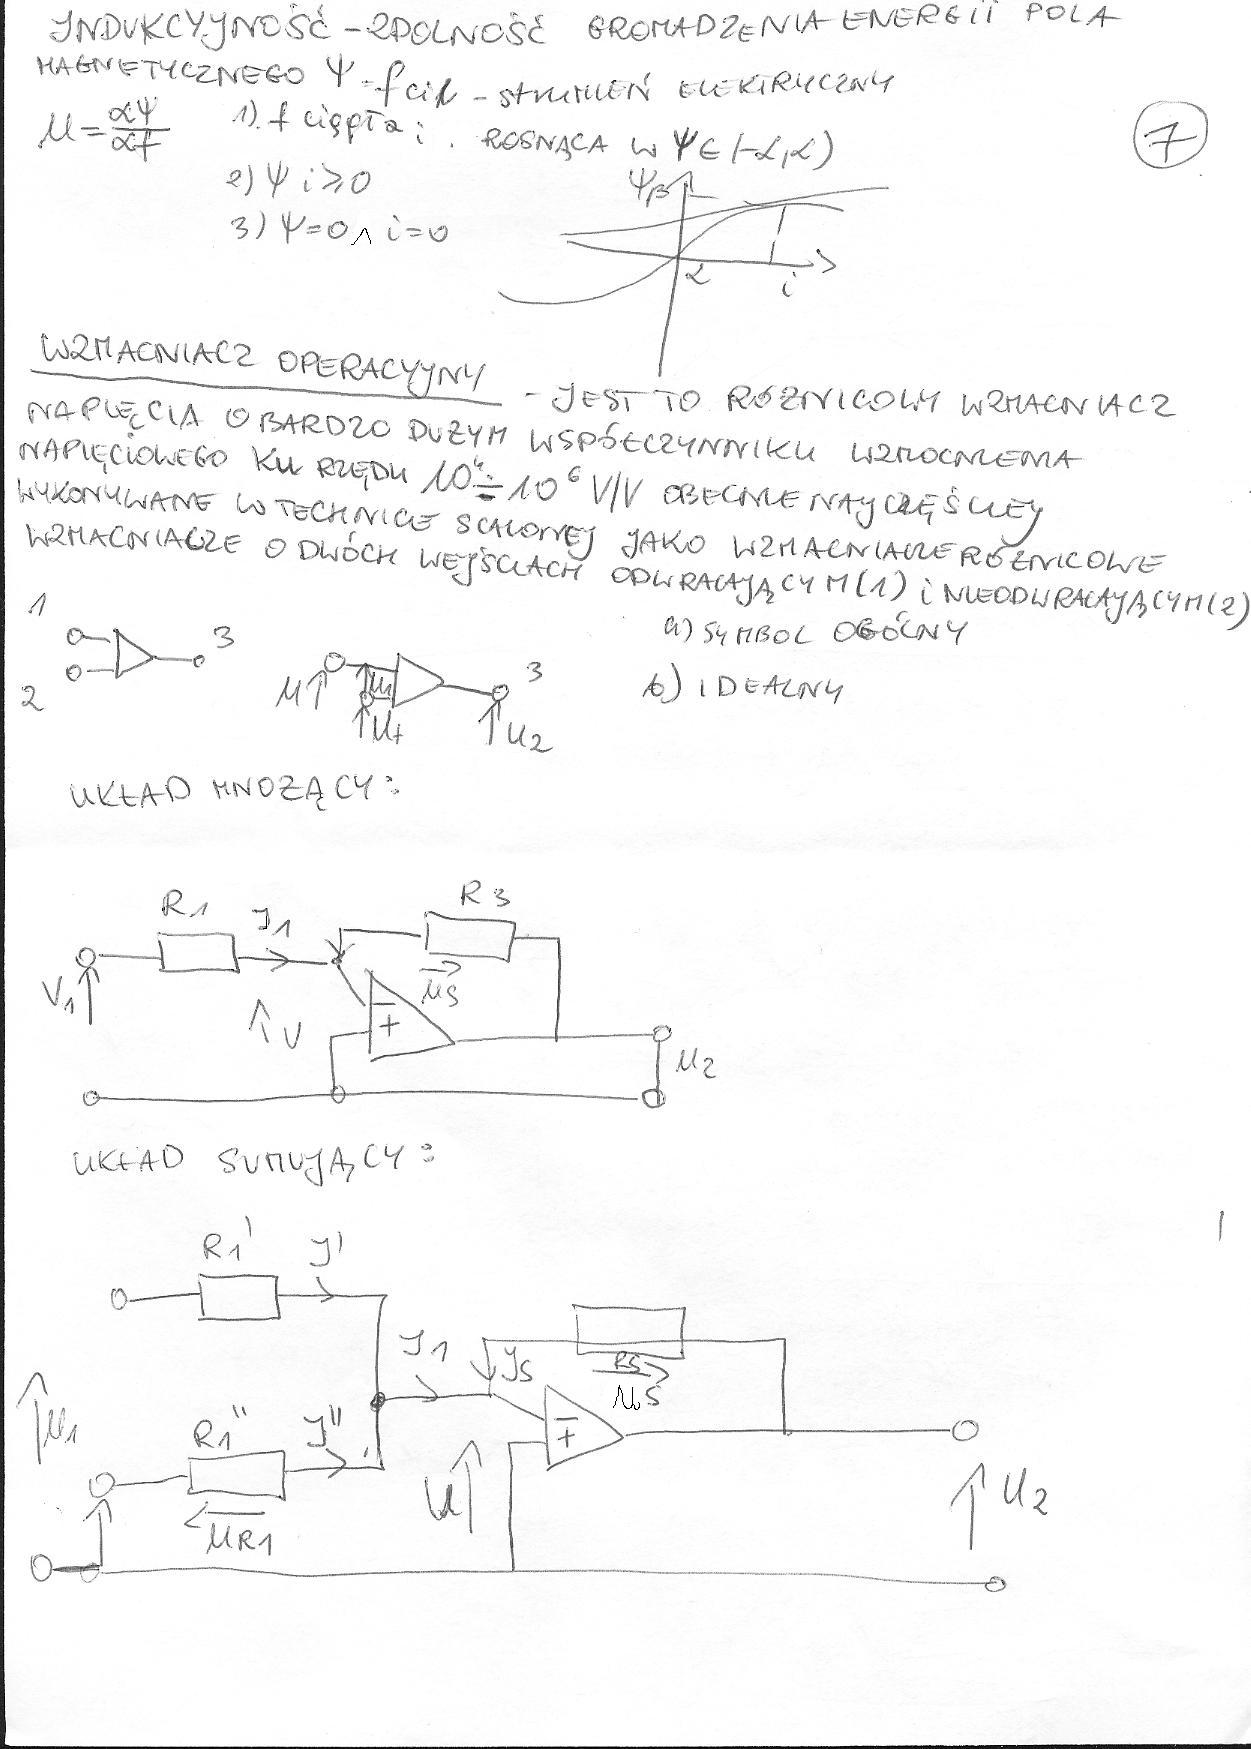 INDUKCYJNOŚĆ – ZDOLNOŚĆ GROMADZENIA ENERGII POLA
MAGNETYCZNEGO Ψ = f ci – STRUMIEŃ ELEKTRYCZNY
u = αΨ/αt 1). f ciągła i . ROSNĄCA W Ψ ∈ (-α, α)
7
2) Ψ i ≥ 0
3) Ψ = 0 ∧ i = 0
Ψβ
α
i
WZMACNIACZ OPERACYJNY – JEST TO RÓŻNICOWY WZMACNIACZ
NAPIĘCIA O BARDZO DUŻYM WSPÓŁCZYNNIKU WZMOCNIENIA
NAPIĘCIOWEGO KU RZĘDU 10⁴ ÷ 10⁶ V/V OBECNIE NAJCZĘŚCIEJ
WYKONYWANE W TECHNICE SCALONEJ JAKO WZMACNIACZE RÓŻNICOWE
WZMACNIACZE O DWÓCH WEJŚCIACH ODWRACAJĄCYM(1) i NIEODWRACAJĄCYM(2)
a) SYMBOL OGÓLNY
b) IDEALNY
1
2
3
u
u
u+
3
u2
UKŁAD MNOŻĄCY:
R1
I1
R3
V1
V
us
– +
u2
UKŁAD SUMUJĄCY:
R1'
I'
I1
Is
Rs
us
u1
R1''
I''
uR1
u
– +
u2